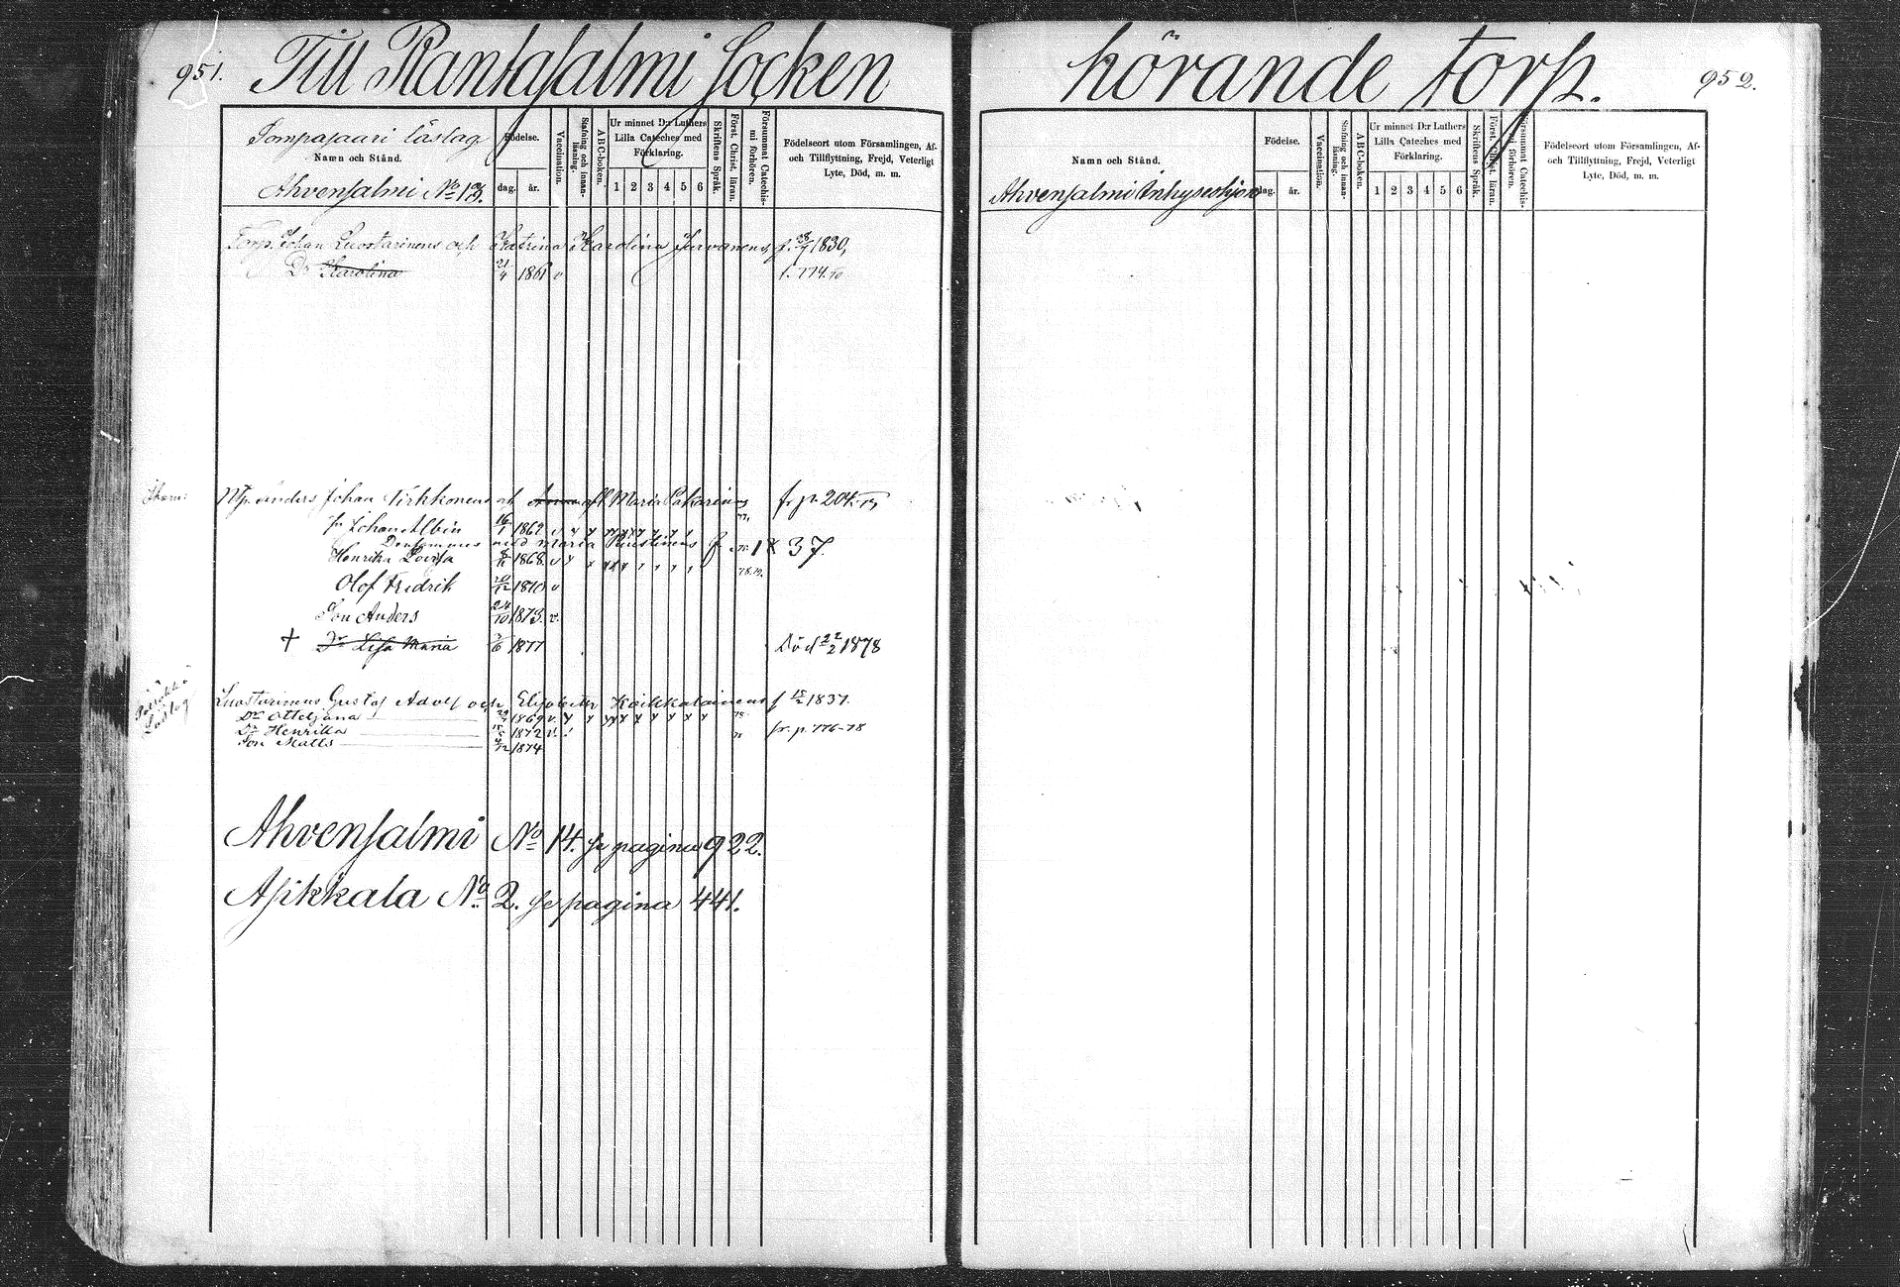 951.
Till Rantasalmi Socken
Tompasaari läslag
Namn och Stånd.
Ahvensalmi No 13.
Födelse.
dag. år.
Vaccination.
Stafning och innan-läsning.
ABC-boken.
Ur minnet D:r Luthers
Lilla Cateches med
Förklaring.
1 2 3 4 5 6
Skriftens Språk.
Först. Christ. läran.
Försummat Catechis-mi förhören.
Födelseort utom Församlingen, Af-
och Tillflyttning, Frejd, Veterligt
Lyte, Död, m. m.
Torp. Johan Luostarinens och Katrina Karolina f. 1830,
Dr Karolina 1861 v
Anders Johan Tirkkonens Maria fr p. 204.
Johan Albin 16/1 1862
med Maria 37.
Henrika Lovisa 1868
Olof Fredrik 1870 v
Son Anders 24/10 1873. v.
† Dr Lisa Maria 1877 Död 22/2 1878
Luostarinens Gustaf Adolf och Elisabeth Koikkalainens f 1837.
Dr Ottiljana 1869 v.
Dr Henrika 1872 v. fr. p. 776-78
Son Matts 1874
Ahvensalmi No 14. se pagina 922.
Asikkala No 2. se pagina 441.
hörande torp.
952.
Namn och Stånd.
Ahvensalmi Inhyseshjon
Födelse.
dag. år.
Vaccination.
Stafning och innan-läsning.
ABC-boken.
Ur minnet D:r Luthers
Lilla Cateches med
Förklaring.
1 2 3 4 5 6
Skriftens Språk.
Först. Christ. läran.
Försummat Catechis-mi förhören.
Födelseort utom Församlingen, Af-
och Tillflyttning, Frejd, Veterligt
Lyte, Död, m. m.